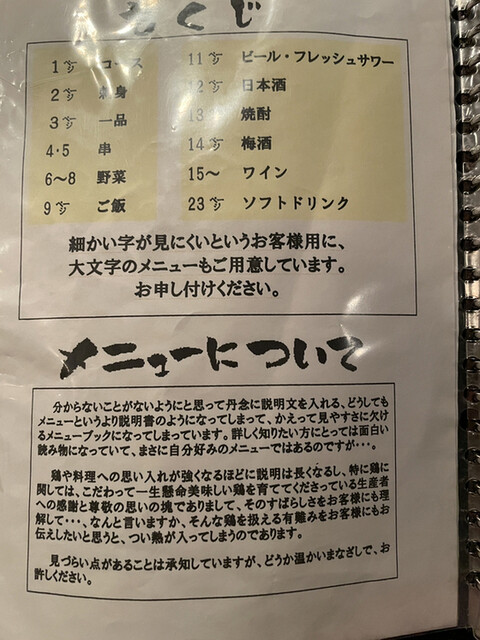 もくじ
1㌻ コース
2㌻ 刺身
3㌻ 一品
4・5 串
6〜8 野菜
9㌻ ご飯
11㌻ ビール・フレッシュサワー
12㌻ 日本酒
13㌻ 焼酎
14㌻ 梅酒
15〜 ワイン
23㌻ ソフトドリンク
細かい字が見にくいというお客様用に、
大文字のメニューもご用意しています。
お申し付けください。
メニューについて
分からないことがないようにと思って丹念に説明文を入れる、どうしても
メニューというより説明書のようになってしまって、かえって見やすさに欠け
るメニューブックになってしまっています。詳しく知りたい方にとっては面白い
読み物になっていて、まさに自分好みのメニューではあるのですが・・・。
鶏や料理への思い入れが強くなるほどに説明は長くなるし、特に鶏に
関しては、こだわって一生懸命美味しい鶏を育ててくださっている生産者
への感謝と尊敬の思いの塊でありまして、そのすばらしさをお客様にも理
解して・・・、なんと言いますか、そんな鶏を扱える有難みをお客様にもお
伝えしたいと思うと、つい熱が入ってしまうのであります。
見づらい点があることは承知していますが、どうか温かいまなざしで、お
許しください。